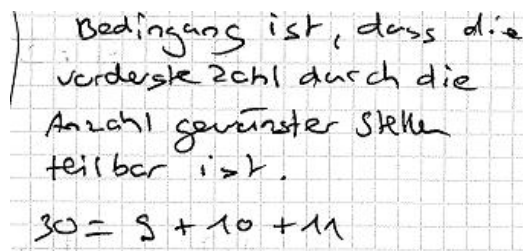 Bedingung ist, dass die
vorderste Zahl durch die
Anzahl gewünster Stellen
teilbar ist.
30 = 9 + 10 + 11